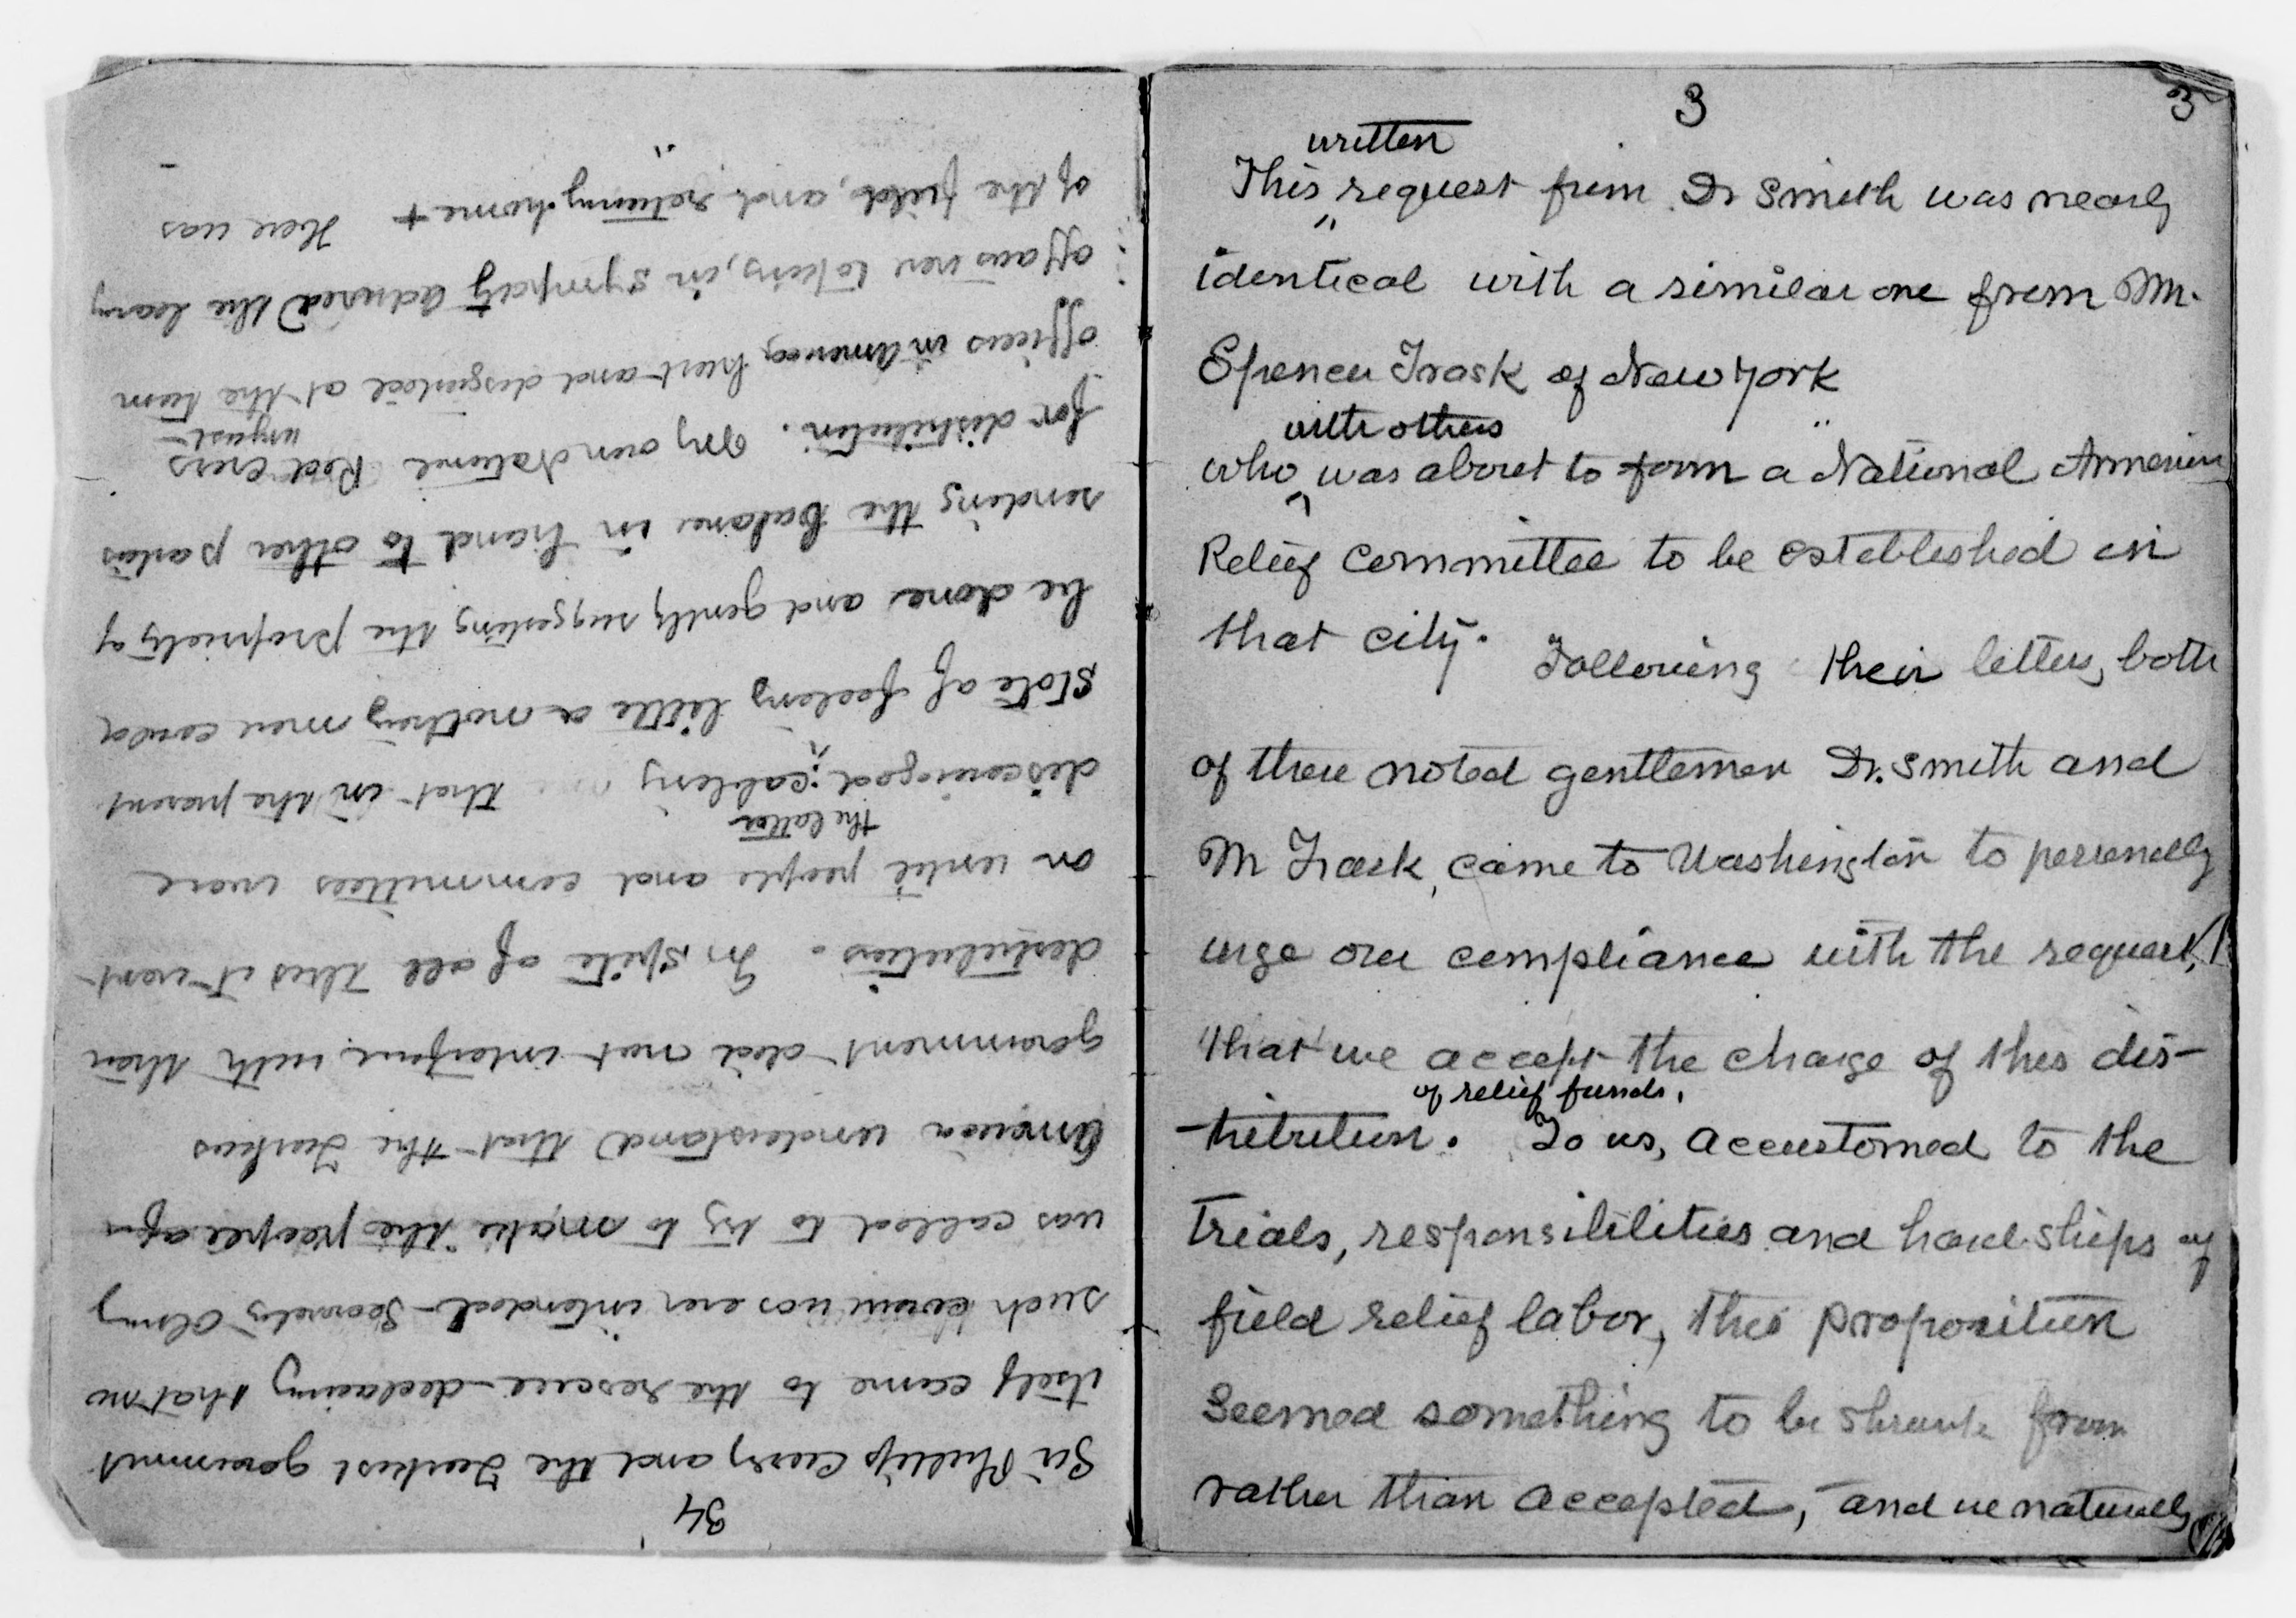 3
3
written
This request from Dr Smith was nearly
identical with a similar one from Mr.
Spencer Trask of New York
with others
who was about to form a National Armenian
Relief Committee to be established in
that city. Following their letters, both
of these noted gentlemen Dr. Smith and
Mr Trask, came to Washington to personally
urge our compliance with the request,
that we accept the charge of this dis-
of relief funds.
tribution. To us, accustomed to the
trials, responsibilities and hardships of
field relief labor, this proposition
seemed something to be shrunk from
rather than accepted, and we naturally
34
Sir Phillip Curry and the Turkish government
itself came to the rescue - declaring that no
such was ever intended - Secretary Olney
was called to try to make the people of
America understand that the Turkish
government did not interfere with their
distribution. In spite of all this it went
on until people and committees were
the latter
discouraged; cabling that in the present
state of feeling little or nothing more could
be done and gently suggesting the propriety of
sending the balance in hand to other parties
for distribution. My own National Red Cross
unjust
officers in America, hurt and disgusted at the turn
affairs were taking, in sympathy advised the leaving
of the field, and returning home + Here was